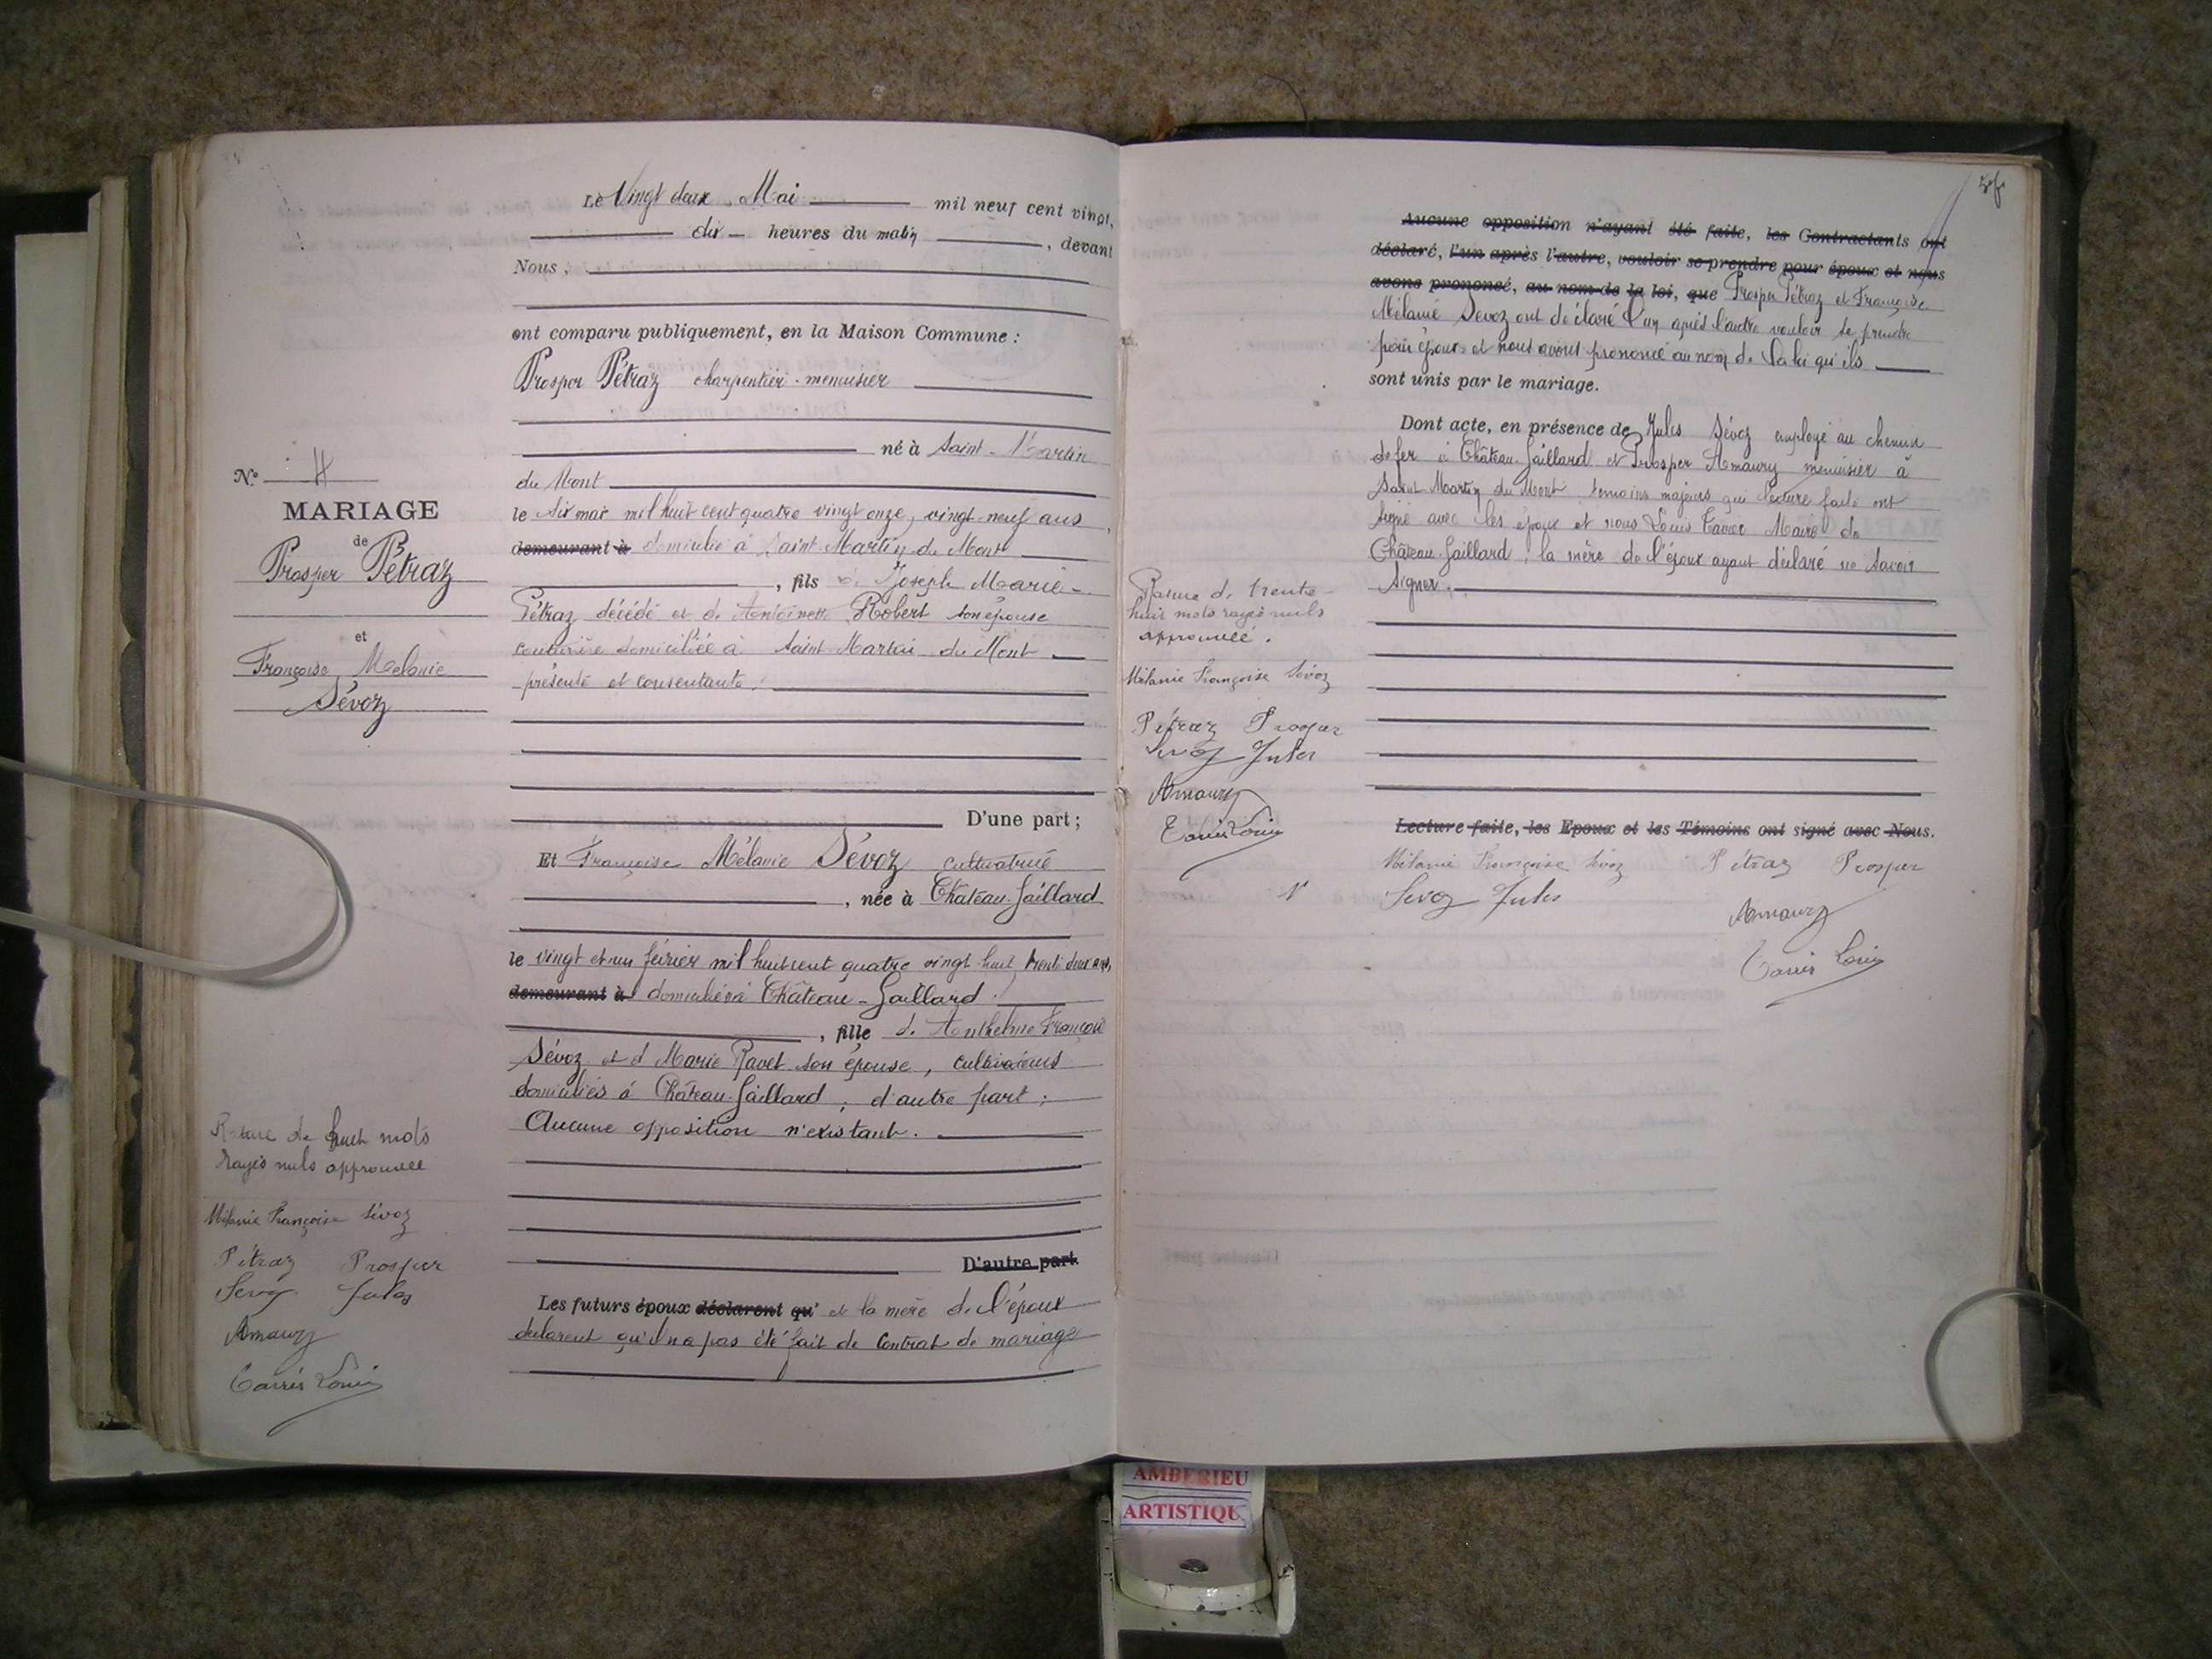 Le Vingt deux Mai mil neuf cent vingt,
dix heures du matin, devant
Nous,
ont comparu publiquement, en la Maison Commune :
Prosper Pétraz charpentier-menuisier
né à Saint-Martin
du Mont
le six mai mil huit cent quatre vingt onze, vingt-neuf ans,
demeurant à domicilié à Saint-Martin du Mont
, fils de Joseph Marie
Pétraz décédé et de Antoinette Robert son épouse
couturière domiciliée à Saint-Martin du Mont
présente et consentante ;
D'une part ;
Et Françoise Mélanie Sévoz cultivatrice
, née à Château-Gaillard
le vingt et un février mil huit cent quatre vingt huit, trente deux ans,
demeurant à domiciliée à Château-Gaillard.
, fille de Anthelme François
Sévoz et d Marie Ravet son épouse, cultivateurs
domiciliés à Château-Gaillard ; d'autre part ;
Aucune opposition n'existant.
D'autre part.
Les futurs époux déclarent qu' et la mère de l'époux
déclarent qu'il n'a pas été fait de contrat de mariage
N° 4
MARIAGE
de
Prosper Pétraz
et
Françoise Mélanie
Sévoz
Rature de huit mots
rayés nuls approuvée
Mélanie Françoise Sévoz
Pétraz Prosper
Sevoz Jules
Amaury
Louis
Aucune opposition n'ayant été faite, les Contractants ont
déclaré, l'un après l'autre, vouloir se prendre pour époux et nous
avons prononcé, au nom de la loi, que Prosper Pétraz et Françoise
Mélanie Sévoz ont déclaré l'un après l'autre vouloir se prendre
pour époux et nous avons prononcé au nom de la loi qu'ils
sont unis par le mariage.
Dont acte, en présence de Jules Sévoz employé au chemin
de fer à Château-Gaillard et Prosper Amaury menuisier à
Saint-Martin du Mont témoins majeurs qui lecture faite ont
signé avec les époux et nous Louis Maire de
Château-Gaillard ; la mère de l'époux ayant déclaré ne savoir
signer.
Lecture faite, les Epoux et les Témoins ont signé avec Nous.
Mélanie Françoise Sévoz Pétraz Prosper
Sevoz Jules
Amaury
Louis
Rature de trente-
huit mots rayés nuls
approuvée.
Mélanie Françoise Sévoz
Pétraz Prosper
Sevoz Jules
Amaury
Louis
AMBERIEU
ARTISTIQU